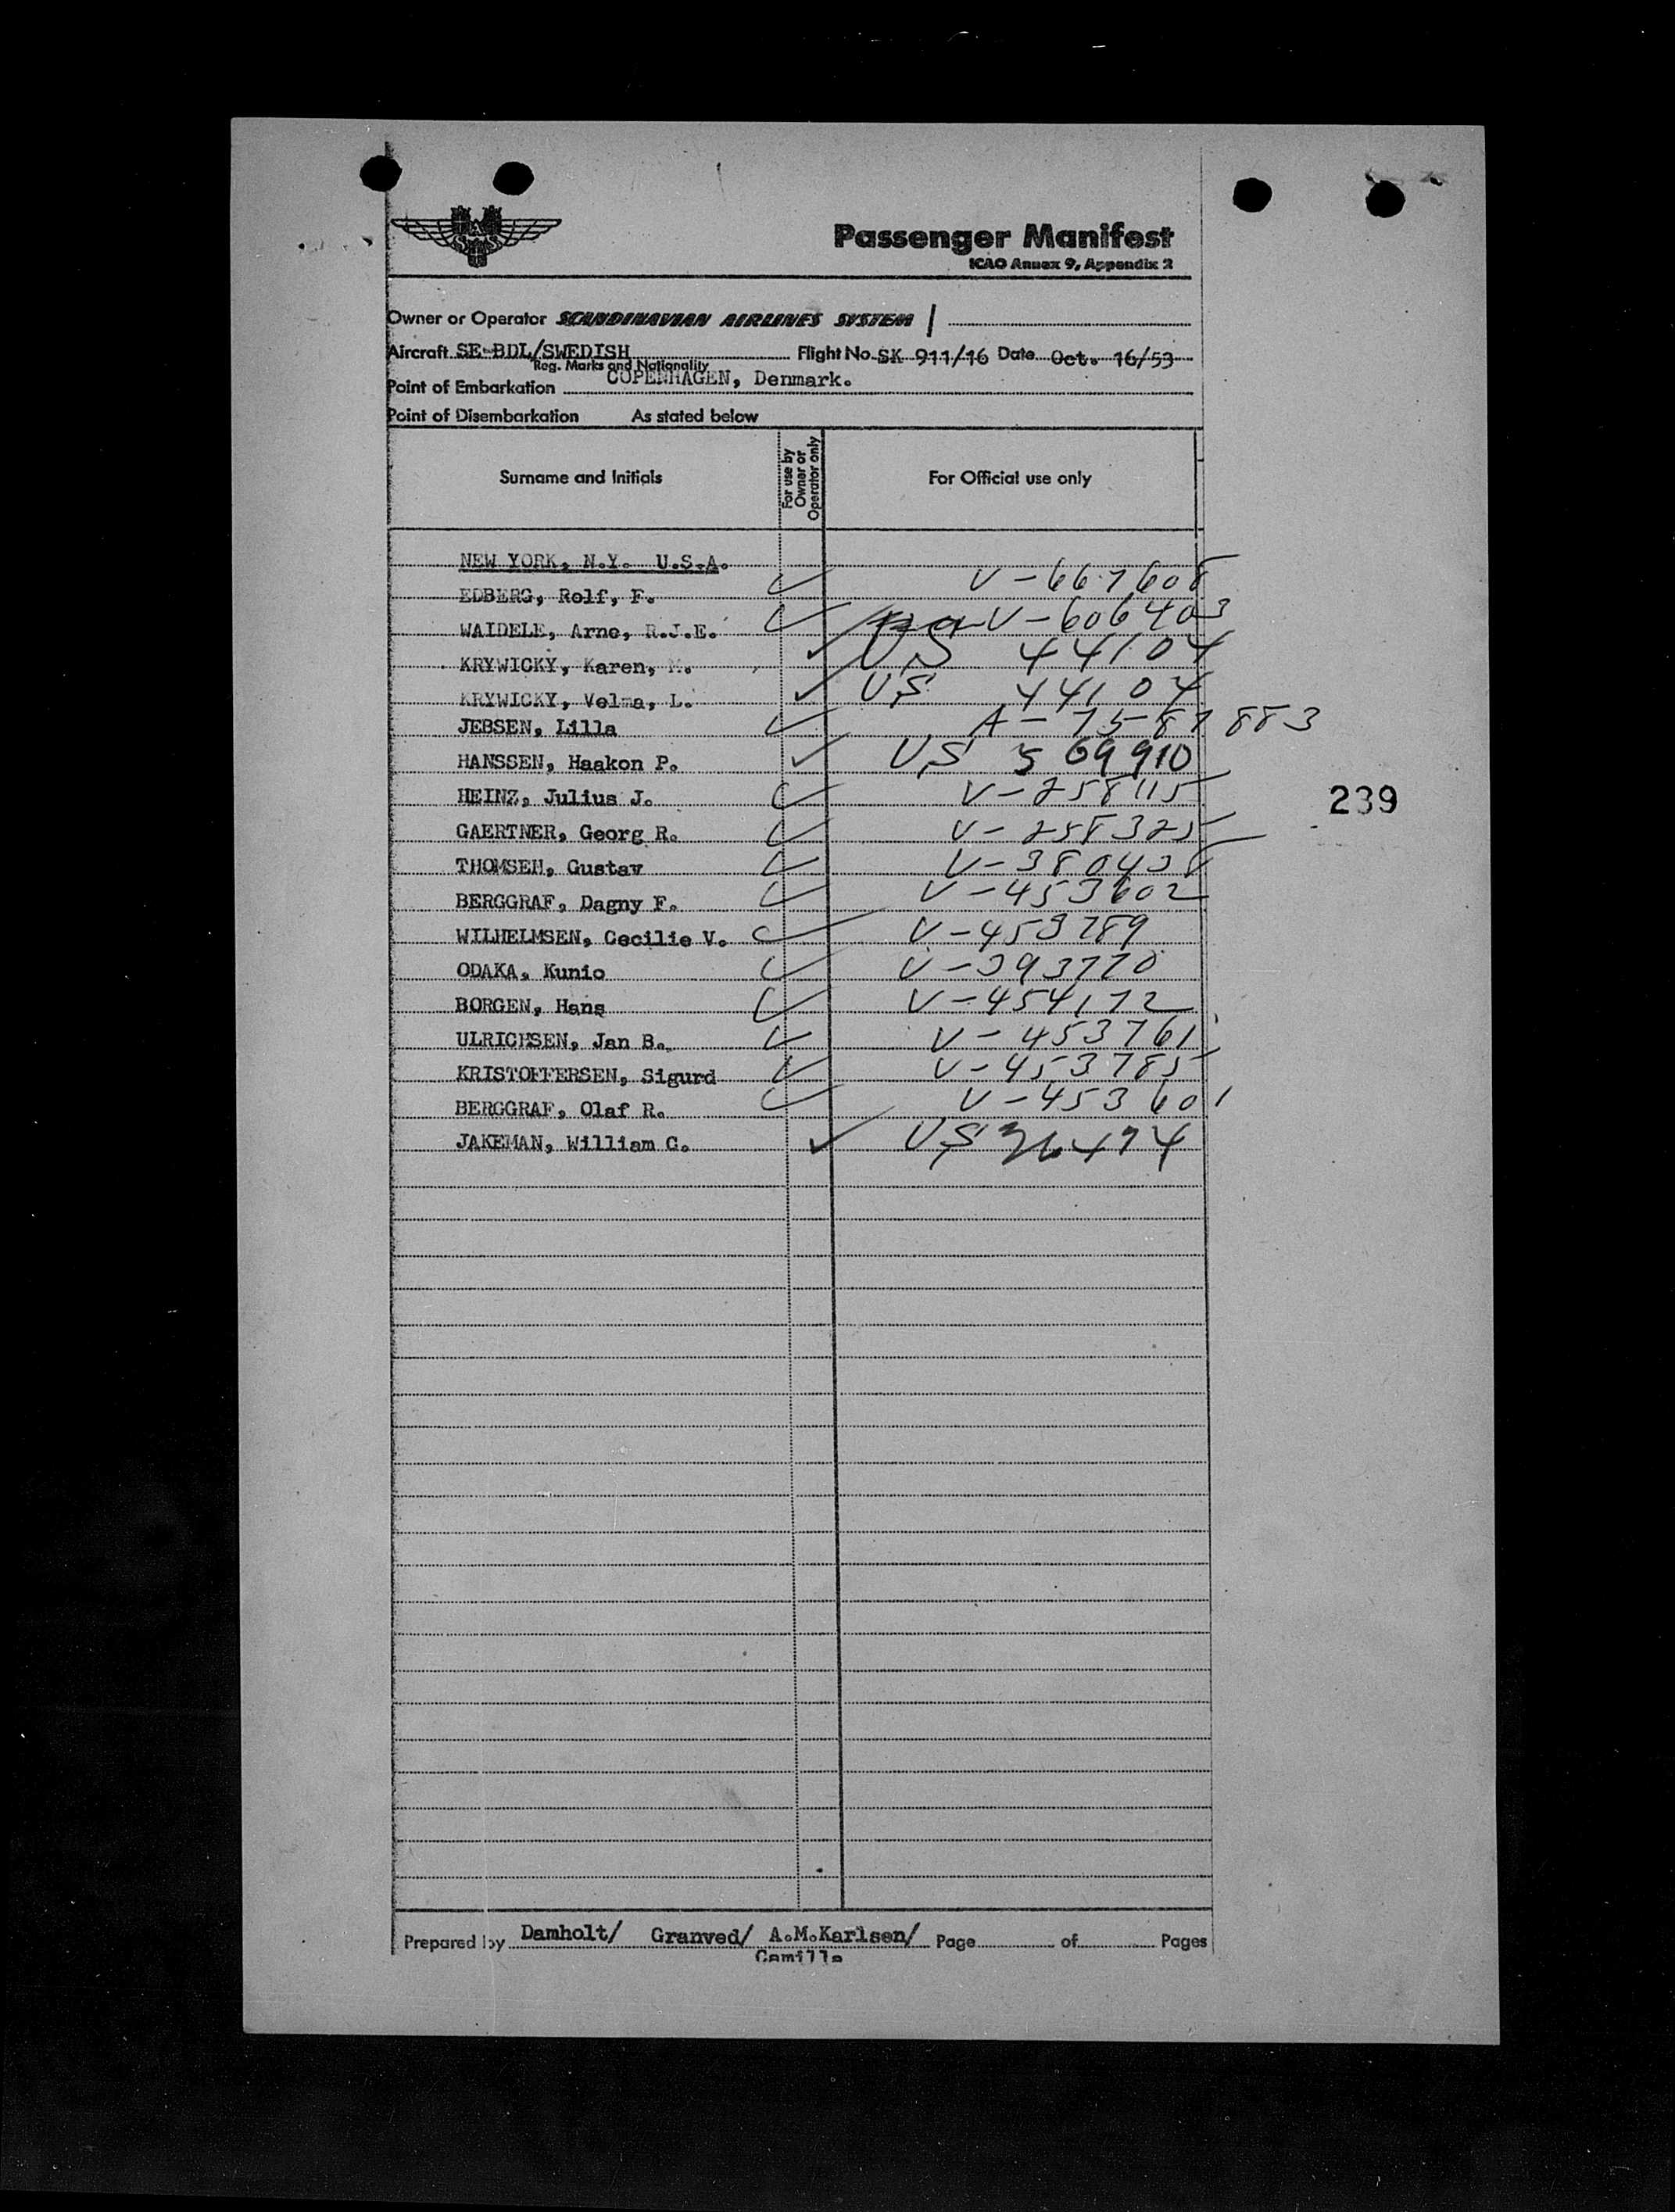 SAS
Passenger Manifest
ICAO Annex 9, Appendix 2
Owner or Operator SCANDINAVIAN AIRLINES SYSTEM
Aircraft SE-BDL/SWEDISH Flight No. SK 911/16 Date Oct. 16/53
Reg. Marks and Nationality
Point of Embarkation COPENHAGEN, Denmark.
Point of Disembarkation As stated below
Surname and Initials For use by Owner or Operator only For Official use only
NEW YORK, N.Y. U.S.A.
EDBERG, Rolf, F. V-667608
WAIDELE, Arne, R.J.E. V-606403
KRYWICKY, Karen, M. US 44104
KRYWICKY, Velma, L. US 44104
JEBSEN, Lilla A-7587883
HANSSEN, Haakon P. US 569910
HEINZ, Julius J. V-258115
GAERTNER, Georg R. V-258325
THOMSEN, Gustav V-380438
BERGGRAF, Dagny F. V-453602
WILHELMSEN, Cecilie V. V-453789
ODAKA, Kunio V-393770
BORGEN, Hans V-454172
ULRICHSEN, Jan B. V-453761
KRISTOFFERSEN, Sigurd V-453785
BERGGRAF, Olaf R. V-453601
JAKEMAN, William C. US 36474
239
Prepared by Damholt/ Granved/ A.M.Karlsen/ Page of Pages
Camilla